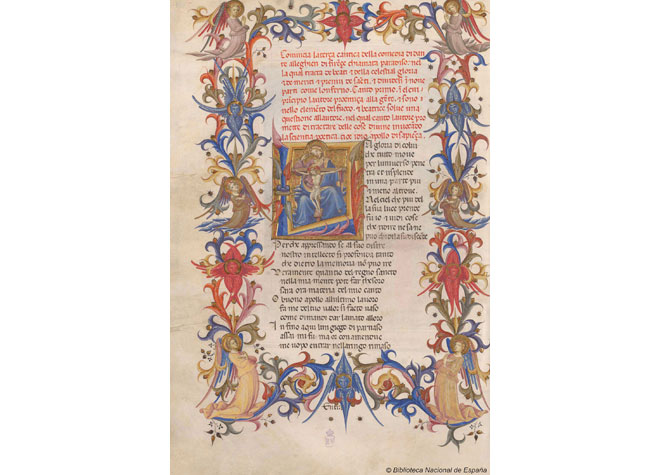 Comincia la terça cantica della comedia di dan
te alleghieri di firẽçe chiamata paradiso. nel
la qual tracta de beati & della celestial gloria
& de meriti & premi de sãcti, & dividesi ĩ nove
parti come lonferno. Canto primo, ĩ el cui
prĩcipio lautore prohemiça alla
nello elemẽto del fuoco, & beatrice solve una
questione allautore, nel qual canto lautore pro
mette di tractare delle cose divine invocãdo
la scientia poetica,
La gloria di colui
che tutto move
per luniverso pene
tra et risplende
in una parte piu
& meno altrove.
Nel ciel che piu del
la sua luce prende
fu io & vidi cose
che ridire ne sa ne
puo
Perche appressando se al suo disire
nostro intellecto si profonda tanto
che dietro la memoria nõ puo ire
Veramente quantio del regno sancto
nella mia mente pote far thesoro
sara ora materia del mio canto
O buono apollo allultimo lavoro
fa me del tuo valor si facto vaso
come dimandi dar lamato alloro
In fino a qui lun giogo di parnaso
assai mi fu ma or con amendue
me uopo entrar nellaringo rimaso
© Biblioteca Nacional de España